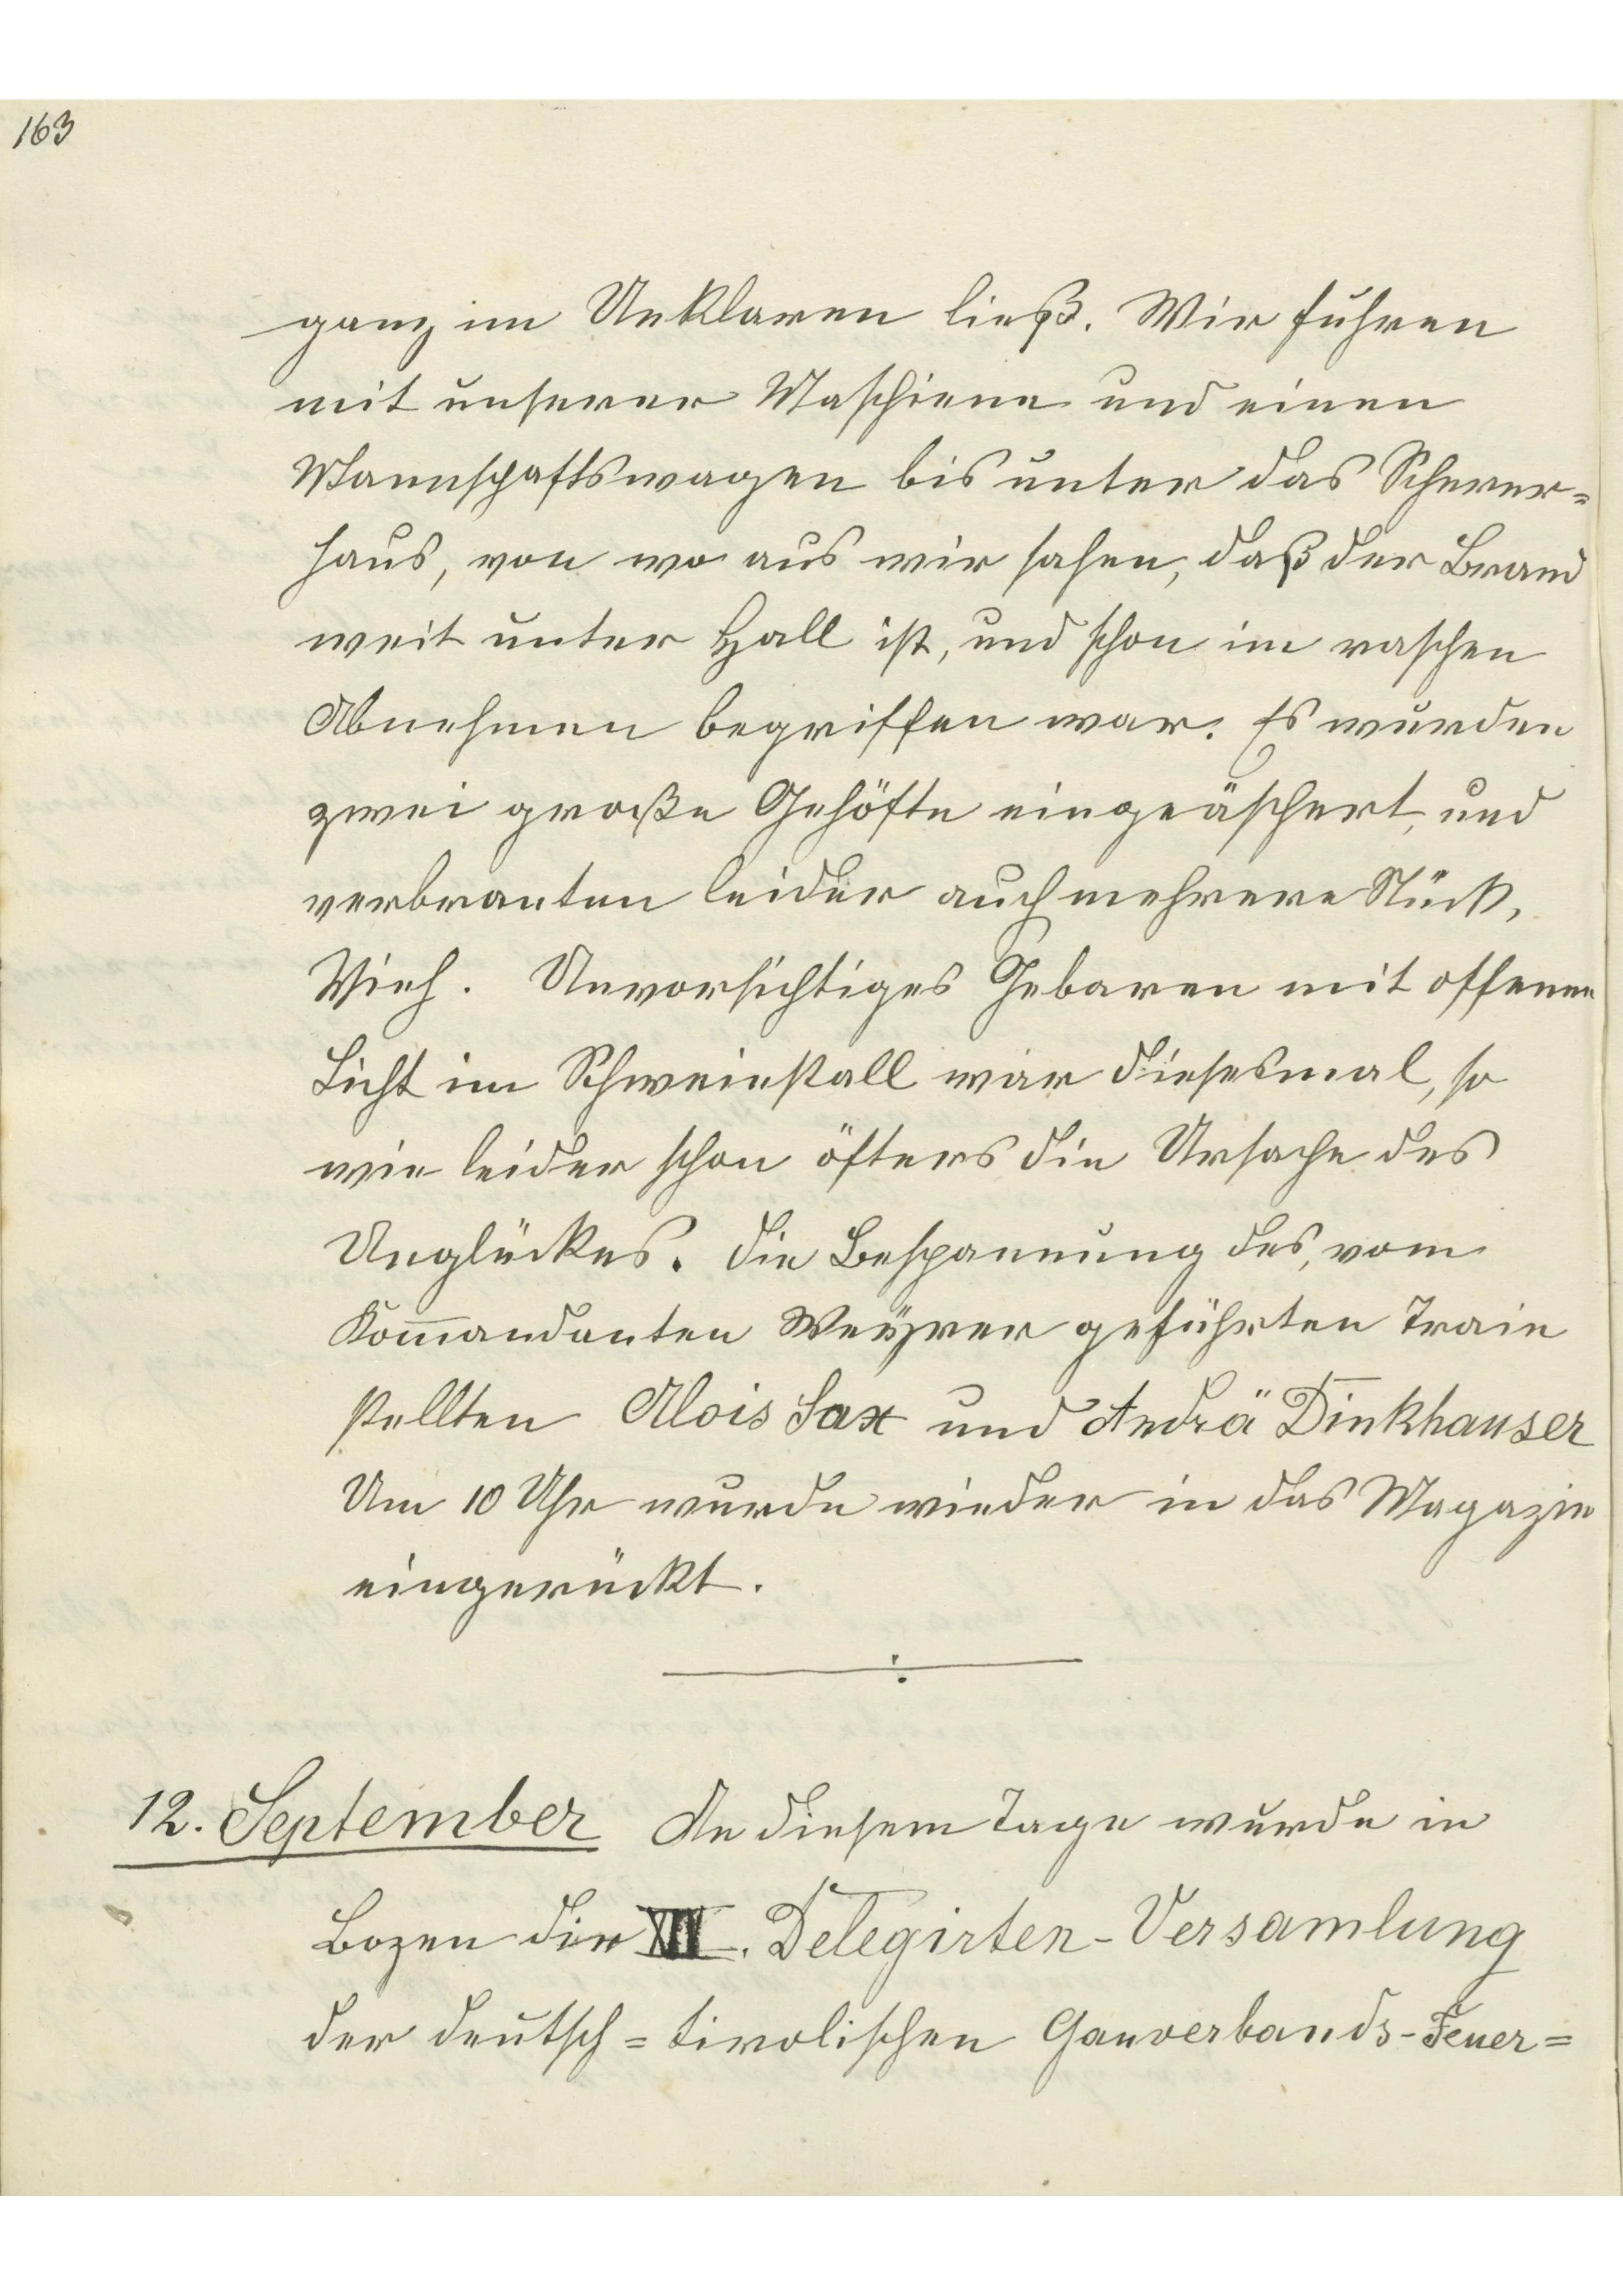 163
ganz im Unklaren ließ. Wir fuhren
mit unserer Maschiene und einen
Mannschaftswagen bis unter das Scherer=
haus, von wo aus wir sahen, daß der Brand
weit unter Hall ist, und schon im raschen
Abnehmen begriffen war. Es wurden
zwei große Gehöfte eingeäschert, und
verbranten leider auch mehrere Stück,
Vieh. Unvorsichtiges Gebaren mit offenen
Licht im Schweinstall war diesesmal, so
wie leider schon öfters die Ursache des
Unglückes. Die Bespannung des, vom
Kom̅andanten Weyrer geführten Train
stellten Alois Sax und Andrä Dinkhauser
Um 10 Uhr wurde wieder in das Magazin
eingerückt.
12. September An diesem Tage wurde in
Bozen die. Delegirten-Versamlung
der deutsch=tirolischen Gauverbands-Feuer=